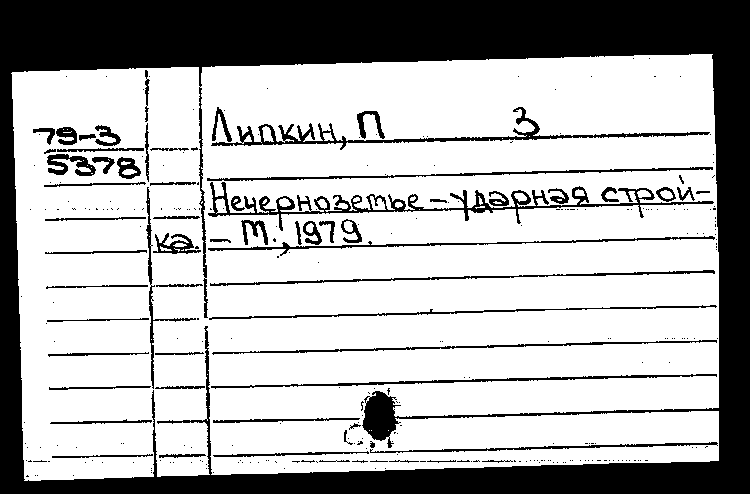 79-3 Липкин, П 3
5378
Нечерноземье – ударная строй-
ка. – М., 1979.